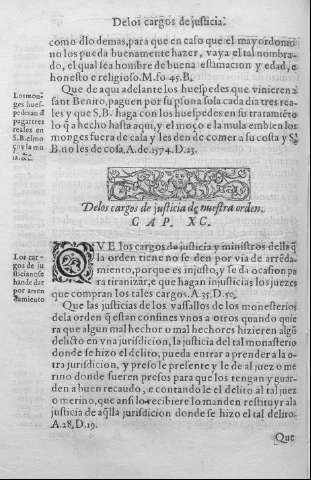 Delos cargos de justicia.
como dlo demas, para que en caso que el mayordomo
no los pueda buenamente hazer, vaya el tal nombra-
do, el qual sea hombre de buena estimacion y edad, e
honesto e religioso. M. fo. 45. B.
Que de aqui adelante los huespedes que vinieren a
sant Benito, paguen por su psona sola cada dia tres rea-
les y que S. B. haga con los huespedes en su tratamiēto
lo q̄ a hecho hasta aqui, y el moço e la mula embien los
monges fuera de casa y les den de comer a su costa y S.
B. no les de cosa. A. de. 1574. D. 23.
Los mon-
ges hues-
pedes an d
pagar tres
reales en
Delos cargos de justicia de nuestra orden.
CAP. XC.
QVE los cargos de justicia y ministros della q̄
la orden tiene no se den por via de arrēda-
miento, porque es injusto, y se da ocasion pa
ra tiranizar, e que hagan injusticias los juezes
que compran los tales cargos. A. 35. D. 50.
Los car-
gos de ju
sticia no se
han de dar
por arren
damiento
Que las justicias de los vassallos de los monesterios
dela orden q̄ estan confines vnos a otros quando quie
ra que algun mal hechor o mal hechores hizieren algū
delicto en vna jurisdicion, la justicia del tal monasterio
donde se hizo el delito, pueda entrar a prender a la o-
tra jurisdicion, y preso le presente y le de al juez o me
rino donde fueren presos para que los tengan y guar-
den a buen recaudo, e contando le el delito al tal juez
o merino, que ansi lo recibiere lo manden restituyr a la
justicia de aq̄lla jurisdicion donde se hizo el tal delito.
A. 28. D. 19.
Que